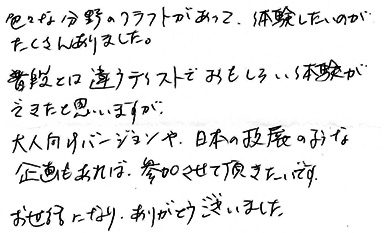 色々な分野のクラフトがあって、体験したいのが
たくさんありました。
普段とは違うテイストでおもしろい体験が
できたと思いますが、
大人向けバージョンや、日本の発展のような
企画もあれば、参加させて頂きたいです。
お世話になり、ありがとうございました。